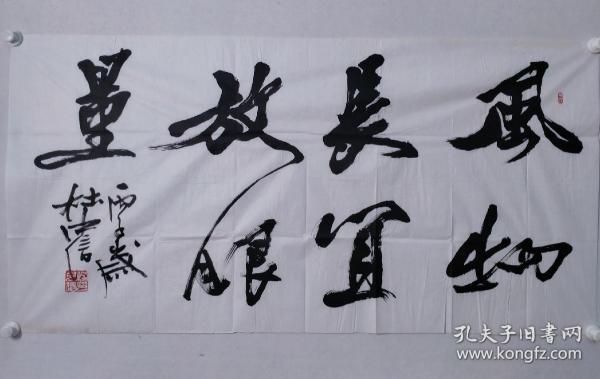 風物
長宜
放眼
量
丙子歲
孔夫子旧书网
www.kongfz.com